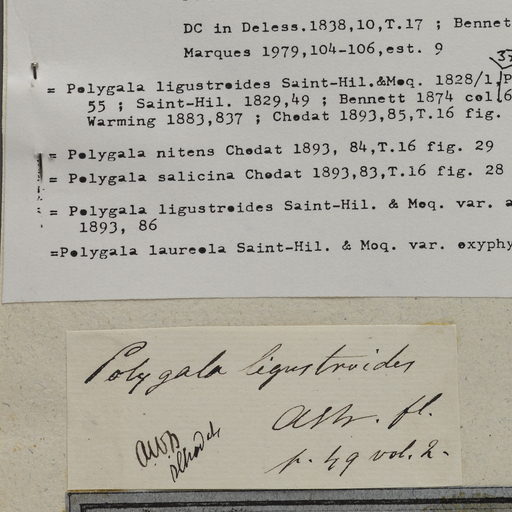 DC in Deless.1838,10,T.17 ; Bennet
Marques 1979,104-106,est. 9
= Polygala ligustroides Saint-Hil.&Moq. 1828/1, P
55 ; Saint-Hil. 1829,49 ; Bennett 1874 col.6
Warming 1883,837 ; Chodat 1893,85,T.16 fig.
= Polygala nitens Chodat 1893, 84,T.16 fig. 29
= Polygala salicina Chodat 1893,83,T.16 fig. 28
= Polygala ligustroides Saint-Hil. & Moq. var. a
1893, 86
=Polygala laureola Saint-Hil. & Moq. var. oxyphy
Polygala ligustroides
ASth. fl.
p. 49 vol. 2.